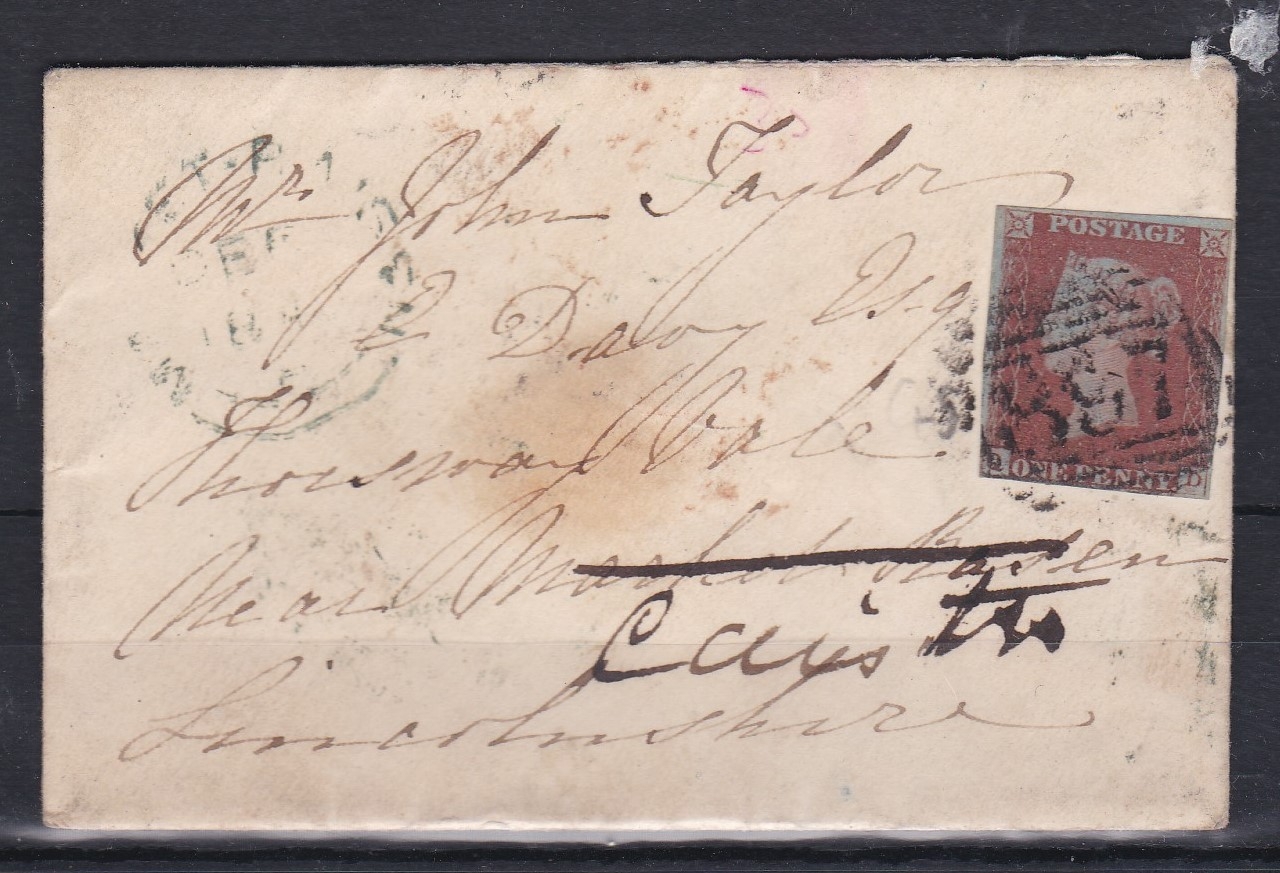 Mr John Taylor
E Davy Esq
Thorsway Vale
Near Market Rasen
Caistor
Lincolnshire
POSTAGE
ONE PENNY.
D